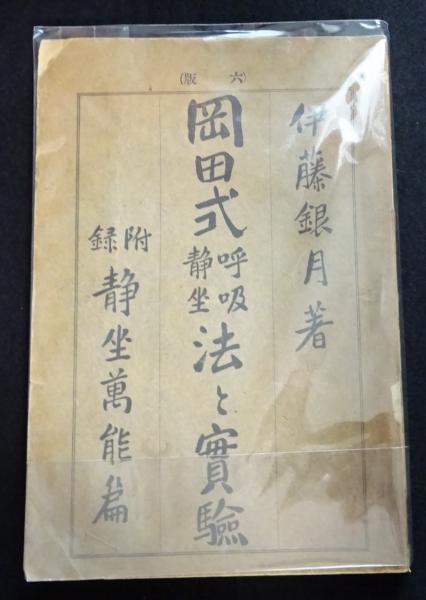 (六版)
伊藤銀月著
岡田式呼吸静坐法と實驗
附録静坐萬能篇